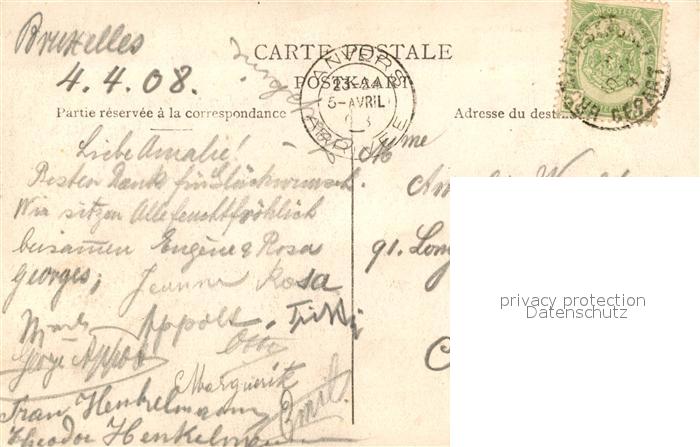 Bruxelles
4.4.08.
CARTE POSTALE
POSTKAART
Partie réservée à la correspondance
Adresse du
ANVERS
23-24
5-AVRIL
ARRIVEE
Liebe Amalie!
Besten Dank für Glückwunsch.
Wir sitzen Alle feuchtfröhlich
beisammen Eugène & Rosa
Georges; Jeanne Rosa
Appolt
George Appol
Otto
Marguerite
Henkelmann
Theodor Henkelmann
Mme
91.
privacy protection
Datenschutz